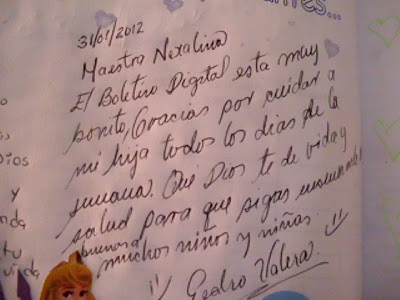 ntes...
31/01/2012
Maestra Nexalina
El Boletin Digital esta muy
bonito, Gracias por cuidar a
mi hija todos los dias de la
semana. Que Dios te de vida y
salud para que sigas enseñando
buenos a
muchos niños y niñas.
Pedro Valera.
Dios
y
nda
tu
vida